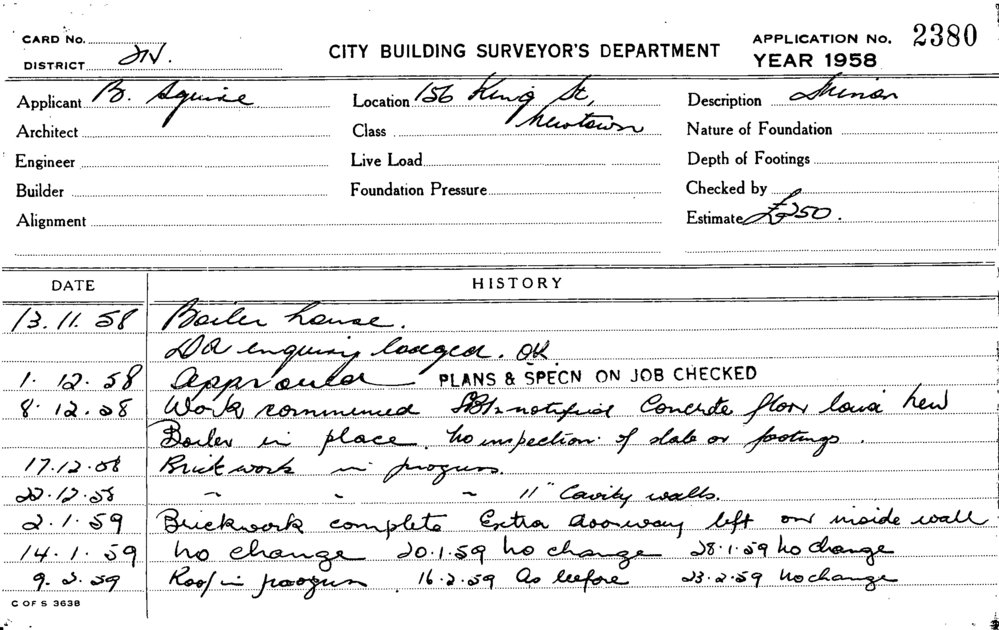 CARD No.
DISTRICT
CITY BUILDING SURVEYOR'S DEPARTMENT
APPLICATION No. 2380
YEAR 1958
Applicant B. Squire
Location 156 King St, Newtown
Description Minor
Architect
Class
Nature of Foundation
Engineer
Live Load
Depth of Footings
Builder
Foundation Pressure
Checked by
Alignment
Estimate £250.
DATE
HISTORY
13.11.58 Boiler house.
DA enquiry lodged. OK
1.12.58 Approved PLANS & SPECN ON JOB CHECKED
8.12.58 Work commenced notified Concrete floor laid new
Boiler in place. No inspection of slab or footings.
17.12.58 Brickwork in progress.
22.12.58 " " " 11" Cavity walls.
2.1.59 Brickwork complete Extra doorway left on inside wall
14.1.59 No change 20.1.59 No change 28.1.59 No change
9.2.59 Roof in progress 16.2.59 As before 23.2.59 No change
C OF S 3638